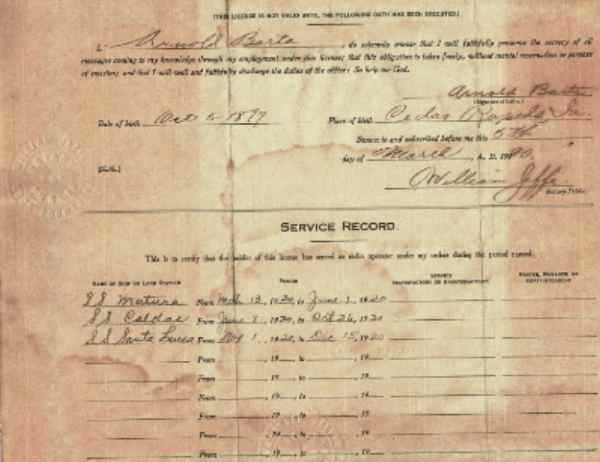 [THIS LICENSE IS NOT VALID UNTIL THE FOLLOWING OATH HAS BEEN EXECUTED.]
I, Arnold Barta, do solemnly swear that I will faithfully preserve the secrecy of all
messages coming to my knowledge through my employment under this license; that this obligation is taken freely, without mental reservation or purpose
of evasion; and that I will well and faithfully discharge the duties of the office: So help me God.
Arnold Barta
(Signature of holder.)
Date of birth Oct 5 1897 Place of birth Cedar Rapids Ia.
Sworn to and subscribed before me this 5th
day of March, A. D. 1920.
[SEAL] William
Notary Public.
SERVICE RECORD.
This is to certify that the holder of this license has served as radio operator under my orders during the period named.
NAME OF SHIP OR LAND STATION PERIOD SERVICE SATISFACTORY OR UNSATISFACTORY
S S Matura From Mch 13, 1920, to June 1, 1920
S S Caldas From June 8, 1920, to Oct 26, 1920
S S Santa Luisa From Nov 1, 1920, to Dec 15, 1920
From , 19 , to , 19
From , 19 , to , 19
From , 19 , to , 19
From , 19 , to , 19
From , 19 , to , 19
, 19 , to , 19